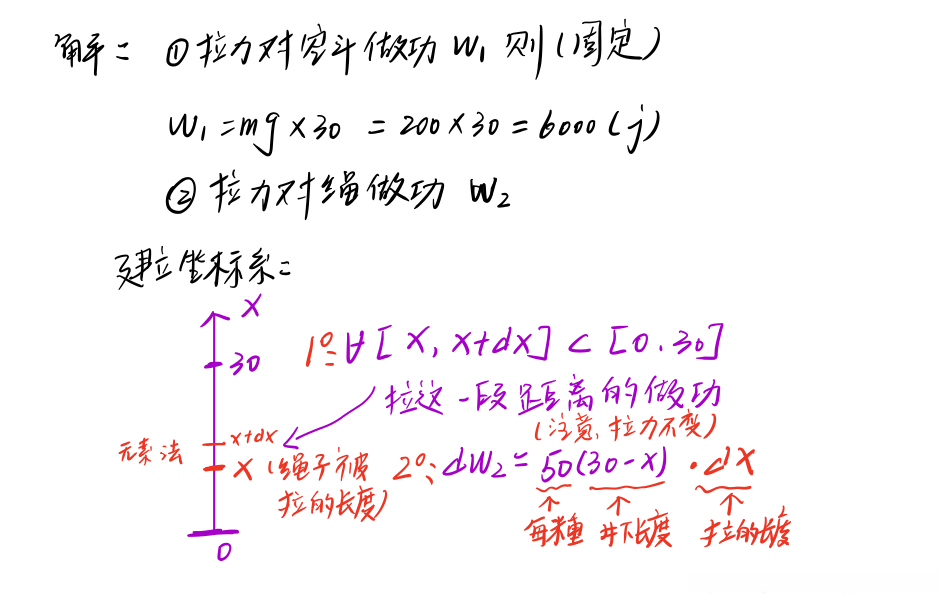 解：①拉力对空斗做功 W₁ 则(固定)
W₁=mg×30 =200×30=6000(j)
②拉力对绳做功 W₂
建立坐标系：
X
30
1°:∀[x, x+dx]⊂[0.30]
拉这一段距离的做功
(注意,拉力不变)
元素法
x+dx
x (绳子被拉的长度)
2°: dW₂=50(30-x)·dx
每米重 井下长度 拉的长度
0